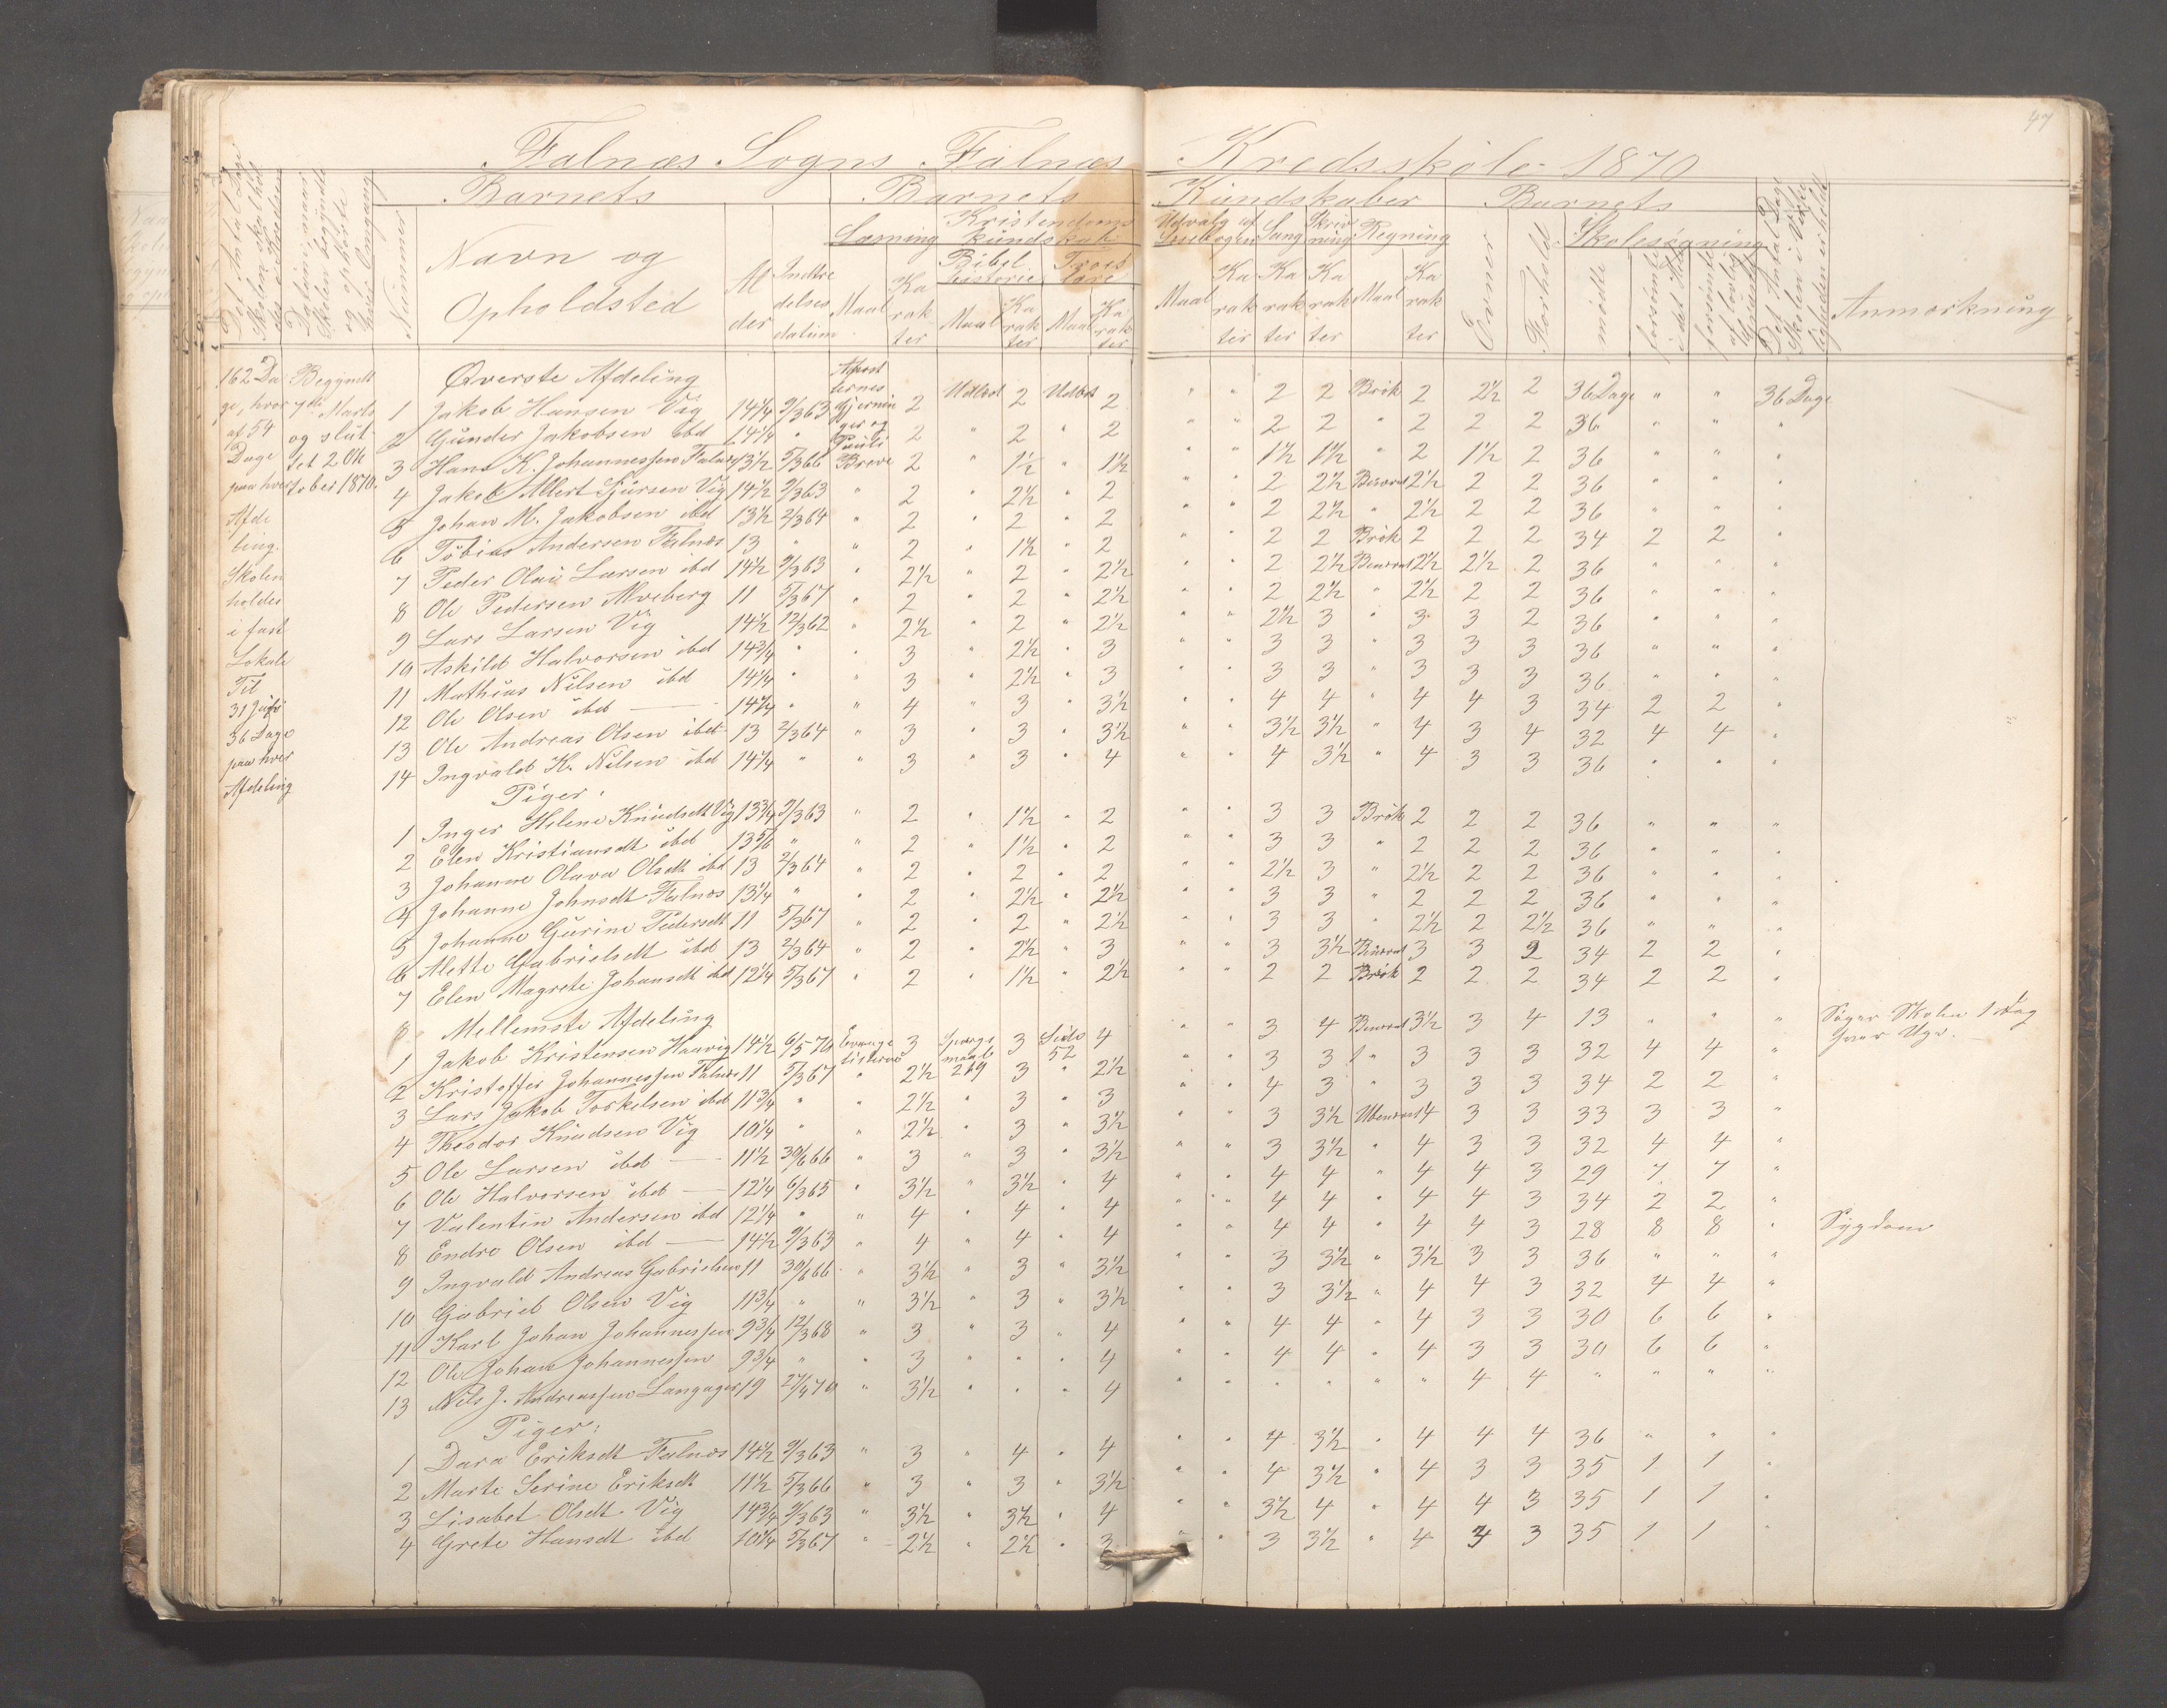 47
Falnæs Sogns Falnæs Kredsskole 1870
Barnets Barnets Kundskaber Barnets
Nummer
Navn og Opholdsted
Alder
Indtrædelses datum
Læsning Kristendoms kundskab Udvalg af Læsebogen Sang Skrivning Regning Evner Forhold Skolesøgning
Maal Karakter Bibelhistorie Troeslære Maal Karakter Maal Karakter Maal Karakter Karakter Karakter Maal Karakter mødte forsømte i det Hele forsømte af lovlig Grund
Anmærkning
162 Dage, hvor af 54 Dage paa hver Afdeling. Skolen holdes i fast Lokale Til 31 Juli 36 Dage paa hver Afdeling
Begyndt 7de Marts og sluttet 2 Oktober 1870.
Øverste Afdeling
1 Jakob Hansen Vig 14¼ 9/3 63 Apostlernes Gjerninger og Pauli Breve 2 Udlæst 2 Udlæst 2 " " 2 2 Brøk 2 2½ 2 36 Dage " " 36 Dage
2 Gunder Jakobsen ibd 14¼ " 2 " 2 " 2 " " 2 2 " 2 2 2 36 " " "
3 Hans K. Johannessen Falnæs 13½ 5/3 66 2 " 1½ " 1½ " " 1½ 1½ " 2 1½ 2 36 " " "
4 Jakob Albert Sjursen Vig 14½ 9/3 63 " 2 " 2½ " 2 " " 2 2½ Benævnt 2½ 2 2 36 " " "
5 Johan M. Jakobsen ibd 13½ 2/3 64 " 2 " 2 " 2 " " 2 2½ " 2½ 2 2 36 " " "
6 Tobias Andersen Falnæs 13 " " 2 " 1½ " 2 " " 2 2 Brøk 2 2 2 34 2 2 "
7 Peder Olai Larsen ibd 14½ 9/3 63 " 2½ " 2 " 2½ " " 2 2½ Benævnt 2½ 2½ 2 36 " " "
8 Ole Pedersen Alveberg 11 5/3 67 " 2 " 2 " 2½ " " 2 2½ " 2½ 2 2 36 " " "
9 Lars Larsen Vig 14½ 12/3 62 " 2½ " 2 " 2½ " " 2½ 3 " 3 3 2 36 " " "
10 Askild Halvorsen ibd 14¾ " " 3 " 2½ " 3 " " 3 3 " 3 3 3 36 " " "
11 Mathias Nilsen ibd 14¼ " " 3 " 2½ " 3 " " 3 3 " 3 3 3 36 " " "
12 Ole Olsen ibd 14¼ " " 4 " 3 " 3½ " " 4 4 " 4 4 3 34 2 2 "
13 Ole Andreas Olsen ibd 13 2/3 64 " 3 " 3 " 3½ " " 3½ 3½ " 4 3 4 32 4 4 "
14 Ingvald K. Nilsen ibd 14¼ " " 3 " 3 " 4 " " 4 3½ " 4 3 3 36 " " "
Piger:
1 Inger Helene Knudsdt Vig 13¾ 9/3 63 " 2 " 1½ " 2 " " 3 3 Brøk 2 2 2 36 " " "
2 Elen Kristiansdt ibd 13 5/6 " " 2 " 1½ " 2 " " 3 3 " 2 2 2 36 " " "
3 Johanne Olava Olsdt ibd 13 2/3 64 " 2 " 2 " 2 " " 2½ 3 " 2½ 2 2 36 " " "
4 Johanne Johnsdt Falnæs 13¼ " " 2 " 2½ " 2½ " " 3 3 " 2 2 2 36 " " "
5 Johanne Gurine Pedersdt 11 5/3 67 " 2 " 2 " 2½ " " 3 3 " 2½ 2 2½ 36 " " "
6 Alette Gabrielsdt ibd 13 2/3 64 " 2 " 2½ " 3 " " 3 3½ Benævnt 3 3 2 34 2 2 "
7 Elen Magrete Johansdt ibd 12¼ 5/3 67 " 2 " 1½ " 2½ " " 2 2 Brøk 2 2 2 34 2 2 "
8 Mellemste Afdeling
1 Jakob Kristensen Haavig 14½ 6/5 70 Evangelisterne 3 Spørgsmaal 219 3 Side 52 4 " " 3 4 Benævnt 3½ 3 4 13 " " " Søger Skolen 1 Dag hver Uge.
2 Kristoffer Johannessen Falnæs 11 5/3 67 " 2½ 3 " 2½ " " 3 3 " 3 3 3 32 4 4 "
3 Lars Jakob Torkelsen ibd 11¾ " " 2½ " 3 " 3 " " 4 3 " 3 3 3 34 2 2 "
4 Theodor Knudsen Vig 10¼ " " 2½ " 3 " 3½ " " 3 3½ Ubenævnt 4 3 3 33 3 3 "
5 Ole Larsen ibd 11½ 30/6 66 " 3 " 3 " 3½ " " 3 3½ " 4 3 3 32 4 4 "
6 Ole Halvorsen ibd 12¼ 6/3 65 " 3½ " 3½ " 4 " " 4 4 " 4 4 3 29 7 7 "
7 Valentin Andersen ibd 12¼ " " 4 " 4 " 4 " " 4 4 " 4 4 3 34 2 2 "
8 Endre Olsen ibd 14½ 9/3 63 " 4 " 4 " 4 " " 4 4 " 4 4 3 28 8 8 " Sygdom
9 Ingvald Andreas Gabrielsen 11 30/6 66 " 3½ " 3 " 3½ " " 3 3½ " 3½ 3 3 36 " " "
10 Gabriel Olsen Vig 11¾ " " 3½ " 3 " 3½ " " 3 3½ " 4 4 3 32 4 4 "
11 Karl Johan Johannessen 9¾ 12/3 68 " 3 " 3 " 4 " " 4 4 " 4 3 3 30 6 6 "
12 Ole Johan Johannessen 9¾ " " 3 " " " 4 " " 4 4 " 4 3 3 30 6 6 "
13 Nils J. Andreassen Langager 19 27/4 70 " 3½ " " " 4 " " " " " " 4 4 " " " "
Piger:
1 Dara Eriksdt Falnæs 14½ 9/3 63 " 3 " 4 " 4 " " 4 3½ " 4 4 4 36 " " "
2 Marte Serine Eriksdt 11½ 5/3 66 " 3 " 3 " 3½ " " 4 3½ " 4 3 3 35 1 1 "
3 Lisabet Olsdt Vig 14¾ 9/3 63 " 3½ " 3½ " 4 " " 3½ 4 " 4 4 3 35 1 1 "
4 Grete Hansdt ibd 10¼ 5/3 67 " 2½ " 2½ " 3 " " 3 3½ " 4 3 3 35 1 1 "